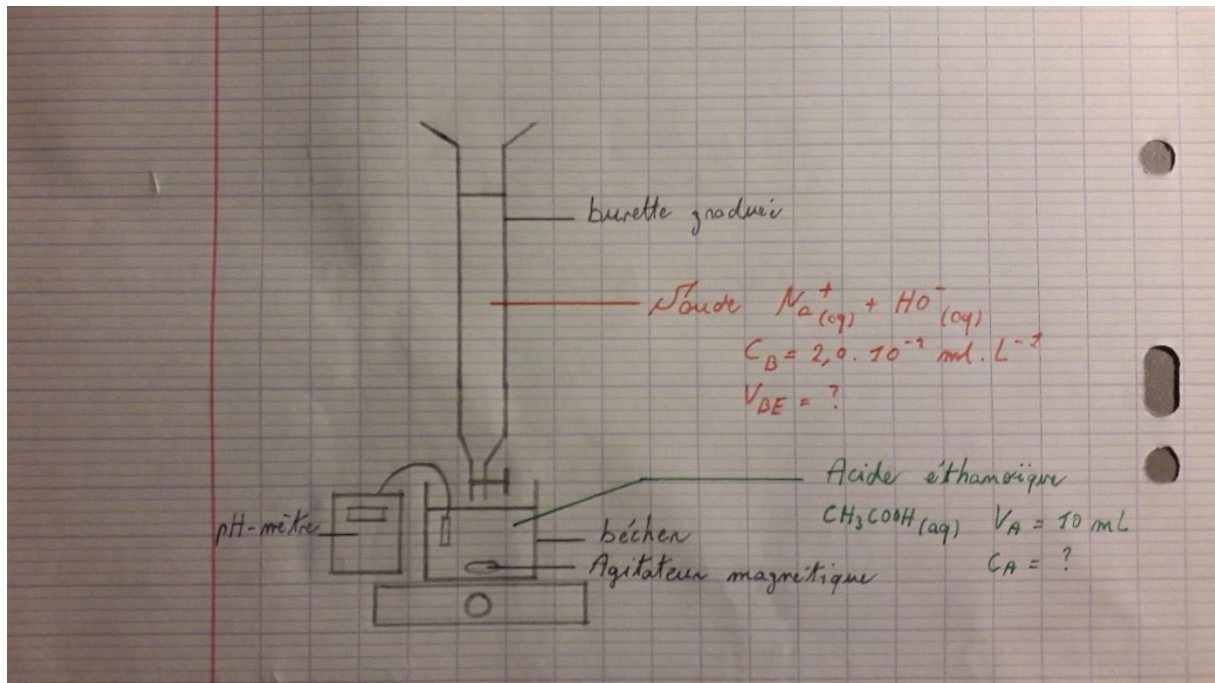 burette graduée
Soude Na⁺(aq) + HO⁻(aq)
C_B = 2,0 . 10⁻² ml . L⁻¹
V_BE = ?
Acide éthanoïque
CH₃COOH(aq) V_A = 10 mL
C_A = ?
pH-mètre
bécher
Agitateur magnétique